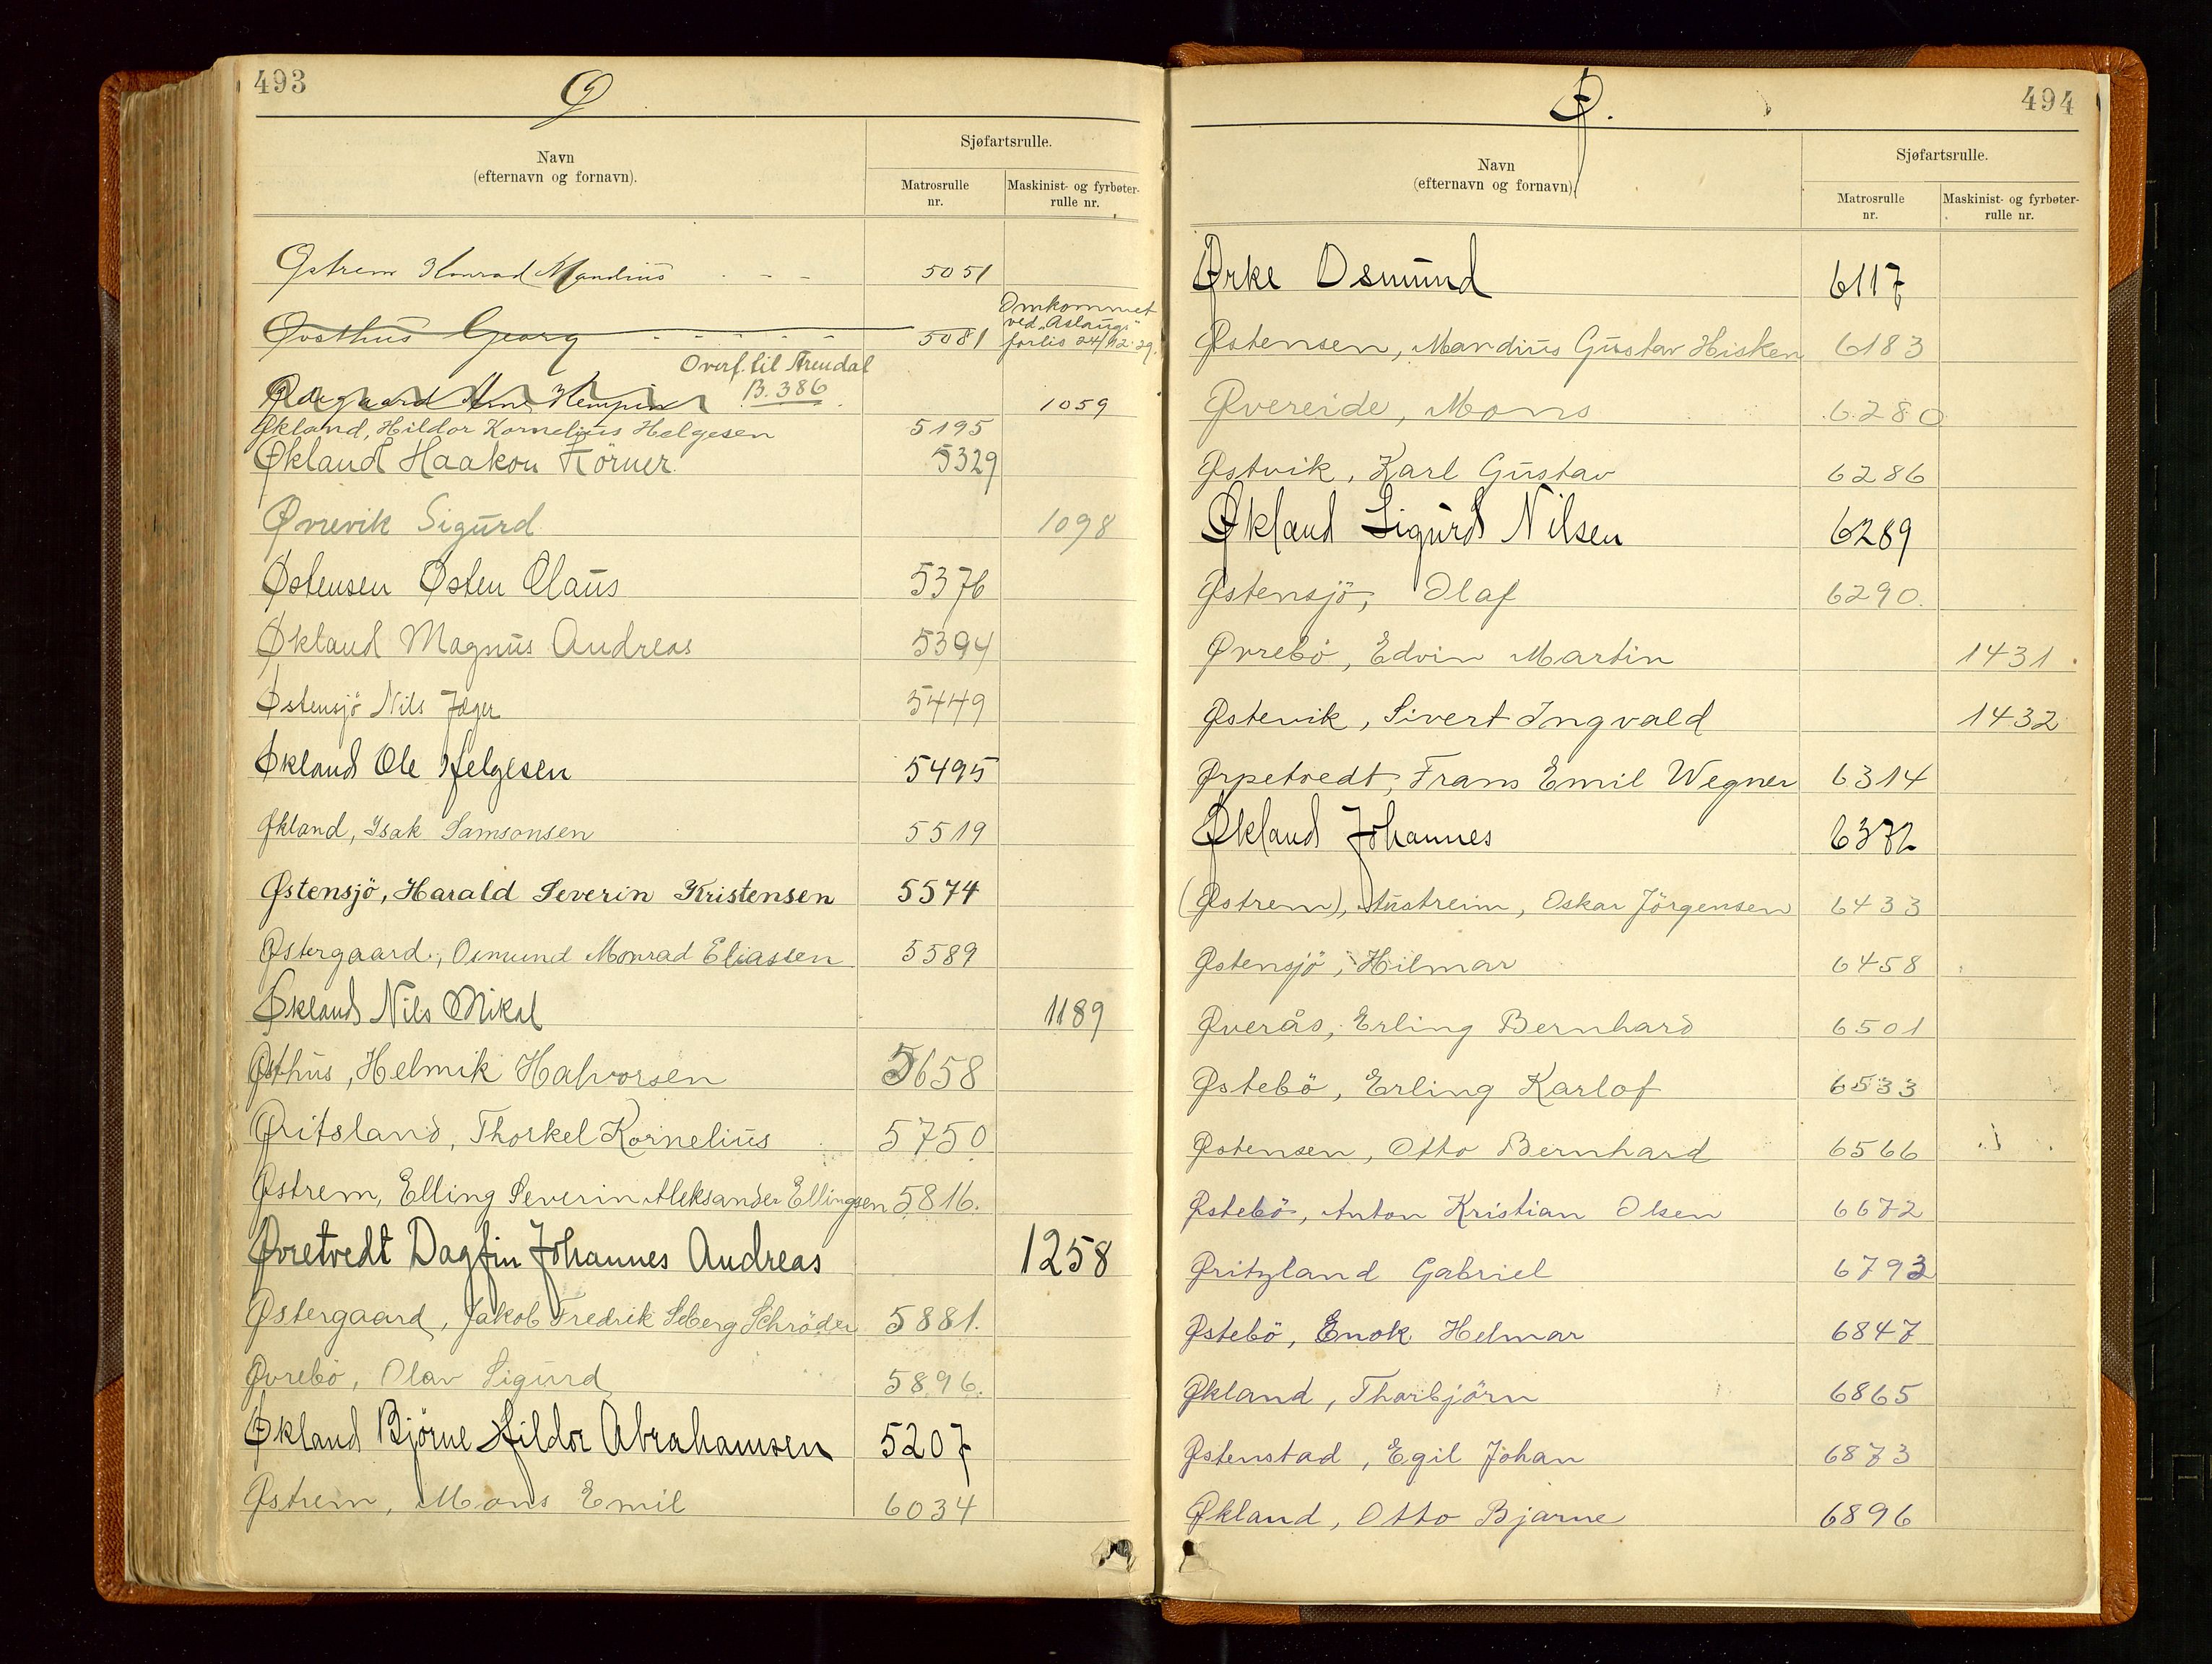 493
Ø
Navn
(efternavn og fornavn).
Sjøfartsrulle.
Matrosrulle
nr.
Maskinist- og fyrbøter-
rulle nr.
Østrem Konrad Mandius 5051
Øvsthus Georg 5081
Omkommet
ved "Aslaugs"
forlis 24/12-29.
Overf. til Arendal
B. 386
Ødegaard Arne 1059
Økland, Hildor Kornelius Helgesen 5195
Økland Haakon Körner 5329
Øvrevik Sigurd 1098
Østensen Østen Claus 5376
Økland Magnus Andreas 5394
Østensjö Nils Jæger 5449
Økland Ole Helgesen 5495
Økland, Isak Samsonsen 5519
Østensjö, Harald Severin Kristensen 5574
Østergaard, Osmund Monrad Eliassen 5589
Økland Nils Mikal 1189
Østhus, Helmik Halvorsen 5658
Øritsland, Thorkel Kornelius 5750
Østrem, Elling Severin Aleksander Ellingsen 5816.
Øvretvedt Dagfin Johannes Andreas 1258
Østergaard, Jakob Fredrik Seberg Schröder 5881.
Øvrebö, Olav Sigurd 5896.
Økland Bjørne Hildor Abrahamsen 5207
Østrem, Mons Emil 6034
494
Ø.
Navn
(efternavn og fornavn).
Sjøfartsrulle.
Matrosrulle
nr.
Maskinist- og fyrbøter-
rulle nr.
Ørke Osmund 6117
Østensen, Mandius Gustav Hisken 6183
Øvereide, Mons 6280
Østvik, Karl Gustav 6286
Økland Sigurd Nilsen 6289
Østensjö, Olaf 6290.
Øvrebö, Edvin Martin 1431.
Østevik, Sivert Ingvald 1432
Ørpetvedt, Frans Emil Wegner 6314
Økland Johannes 6372
(Østrem), Austreim, Oskar Jörgensen 6433
Østensjö, Hilmar 6458
Øverås, Erling Bernhard 6501
Østebö, Erling Karlof 6533
Østensen, Otto Bernhard 6566
Østebö, Anton Kristian Olsen 6672
Øritzland Gabriel 6793
Østebö, Enok Helmar 6847
Økland, Thorbjörn 6865
Østenstad, Egil Johan 6873
Økland, Otto Bjarne 6896